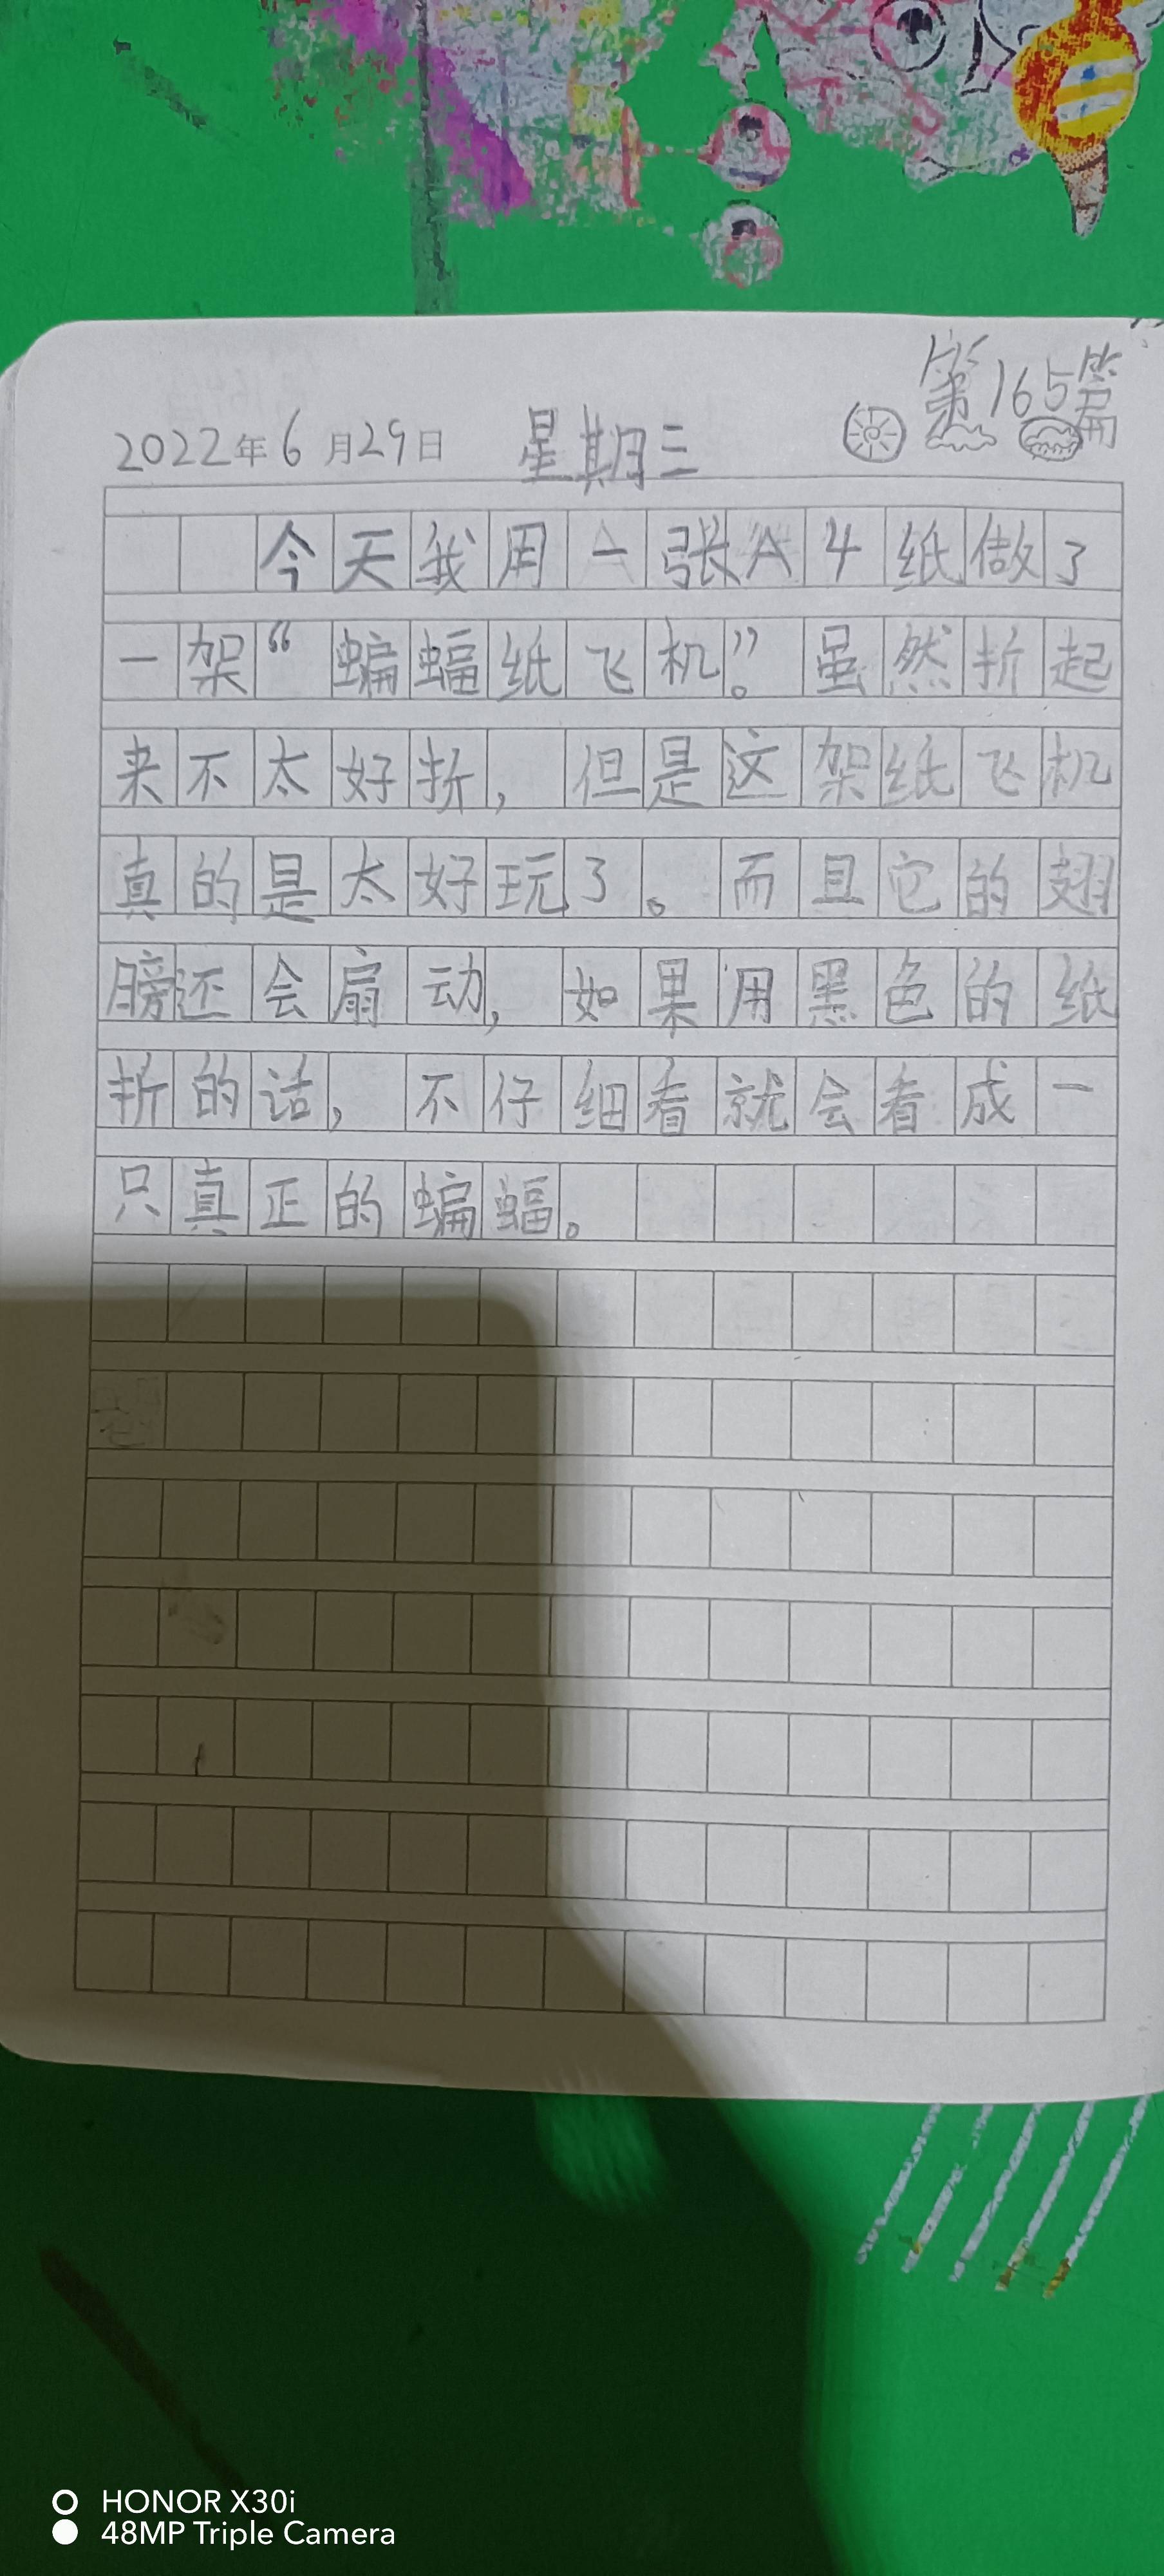 第165篇
2022年6月29日 星期三
今天我用一张A4纸做了
一架“蝙蝠纸飞机”。虽然折起
来不太好折，但是这架纸飞机
真的是太好玩了。而且它的翅
膀还会扇动，如果用黑色的纸
折的话，不仔细看就会看成一
只真正的蝙蝠。
HONOR X30i
48MP Triple Camera